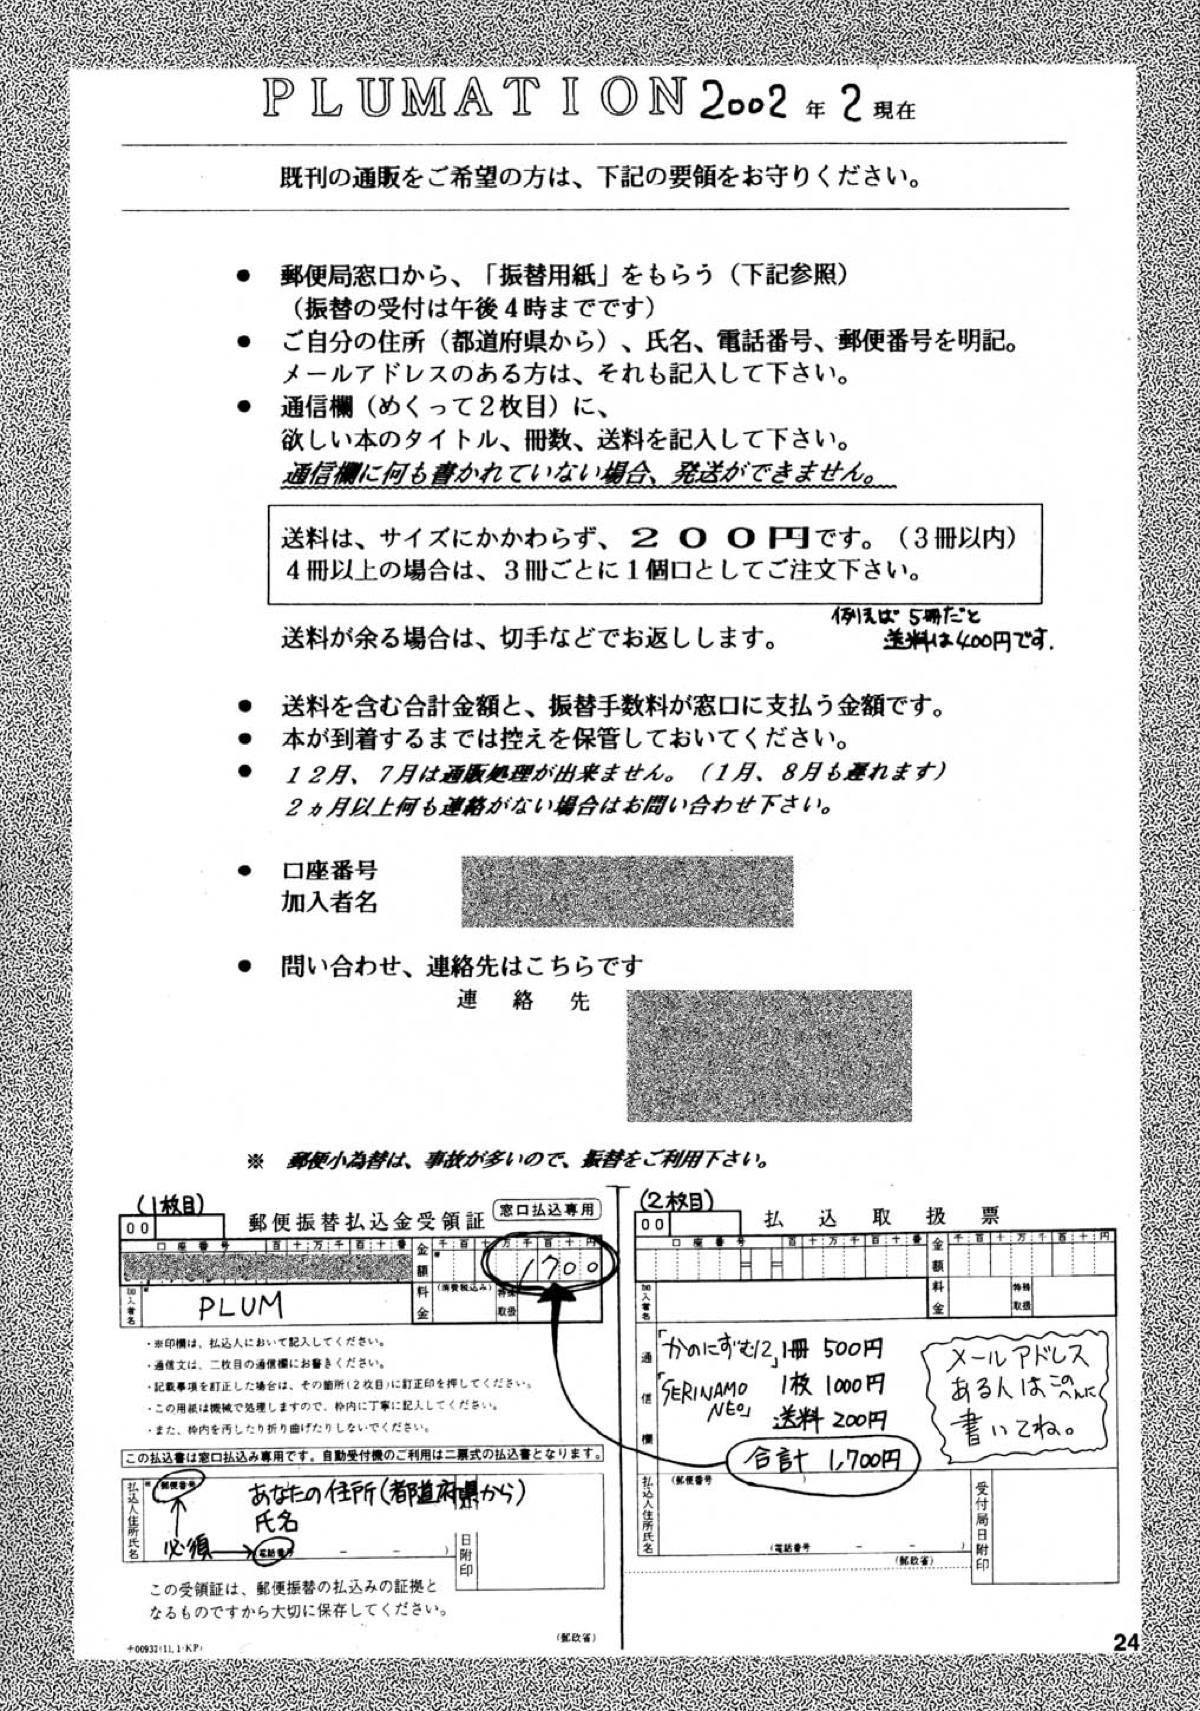 PLUMATION 2002年2現在
既刊の通販をご希望の方は、下記の要領をお守りください。
● 郵便局窓口から、「振替用紙」をもらう（下記参照）
（振替の受付は午後4時までです）
● ご自分の住所（都道府県から）、氏名、電話番号、郵便番号を明記。
メールアドレスのある方は、それも記入して下さい。
● 通信欄（めくって2枚目）に、
欲しい本のタイトル、冊数、送料を記入して下さい。
通信欄に何も書かれていない場合、発送ができません。
送料は、サイズにかかわらず、200円です。（3冊以内）
4冊以上の場合は、3冊ごとに1個口としてご注文下さい。
例えば 5冊だと
送料は400円です.
送料が余る場合は、切手などでお返しします。
● 送料を含む合計金額と、振替手数料が窓口に支払う金額です。
● 本が到着するまでは控えを保管しておいてください。
● 12月、7月は通販処理が出来ません。（1月、8月も遅れます）
2ヵ月以上何も連絡がない場合はお問い合わせ下さい。
● 口座番号
加入者名
● 問い合わせ、連絡先はこちらです
連絡先
※ 郵便小為替は、事故が多いので、振替をご利用下さい。
(1枚目)
00
郵便振替払込金受領証
窓口払込専用
口座番号 百十万千百十番
金額
千百十万千百十円
1700
加入者名
PLUM
料金
(消費税込み)
特殊取扱
・※印欄は、払込人において記入してください。
・通信文は、二枚目の通信欄にお書きください。
・記載事項を訂正した場合は、その箇所(2枚目)に訂正印を押してください。
・この用紙は機械で処理しますので、枠内に丁寧に記入してください。
・また、枠内を汚したり折り曲げたりしないでください。
この払込書は窓口払込み専用です。自動受付機のご利用は二票式の払込書となります。
払込人住所氏名
郵便番号
あなたの住所(都道府県から)
氏名
必須→
(電話番号 － － )
日附印
この受領証は、郵便振替の払込みの証拠と
なるものですから大切に保存してください。
+00937(11.1·KP)
(郵政省)
(2枚目)
00
払込取扱票
口座番号 百十万千百十番
金額
千百十万千百十円
加入者名
料金
特殊取扱
通信欄
「かのにずむ12」1冊 500円
「SERINAMO NEO」 1枚 1000円
送料 200円
合計 1,700円
メールアドレス
ある人はこのへんに
書いてね。
払込人住所氏名
(郵便番号 )
(電話番号 － － )
(郵政省)
受付局日附印
24